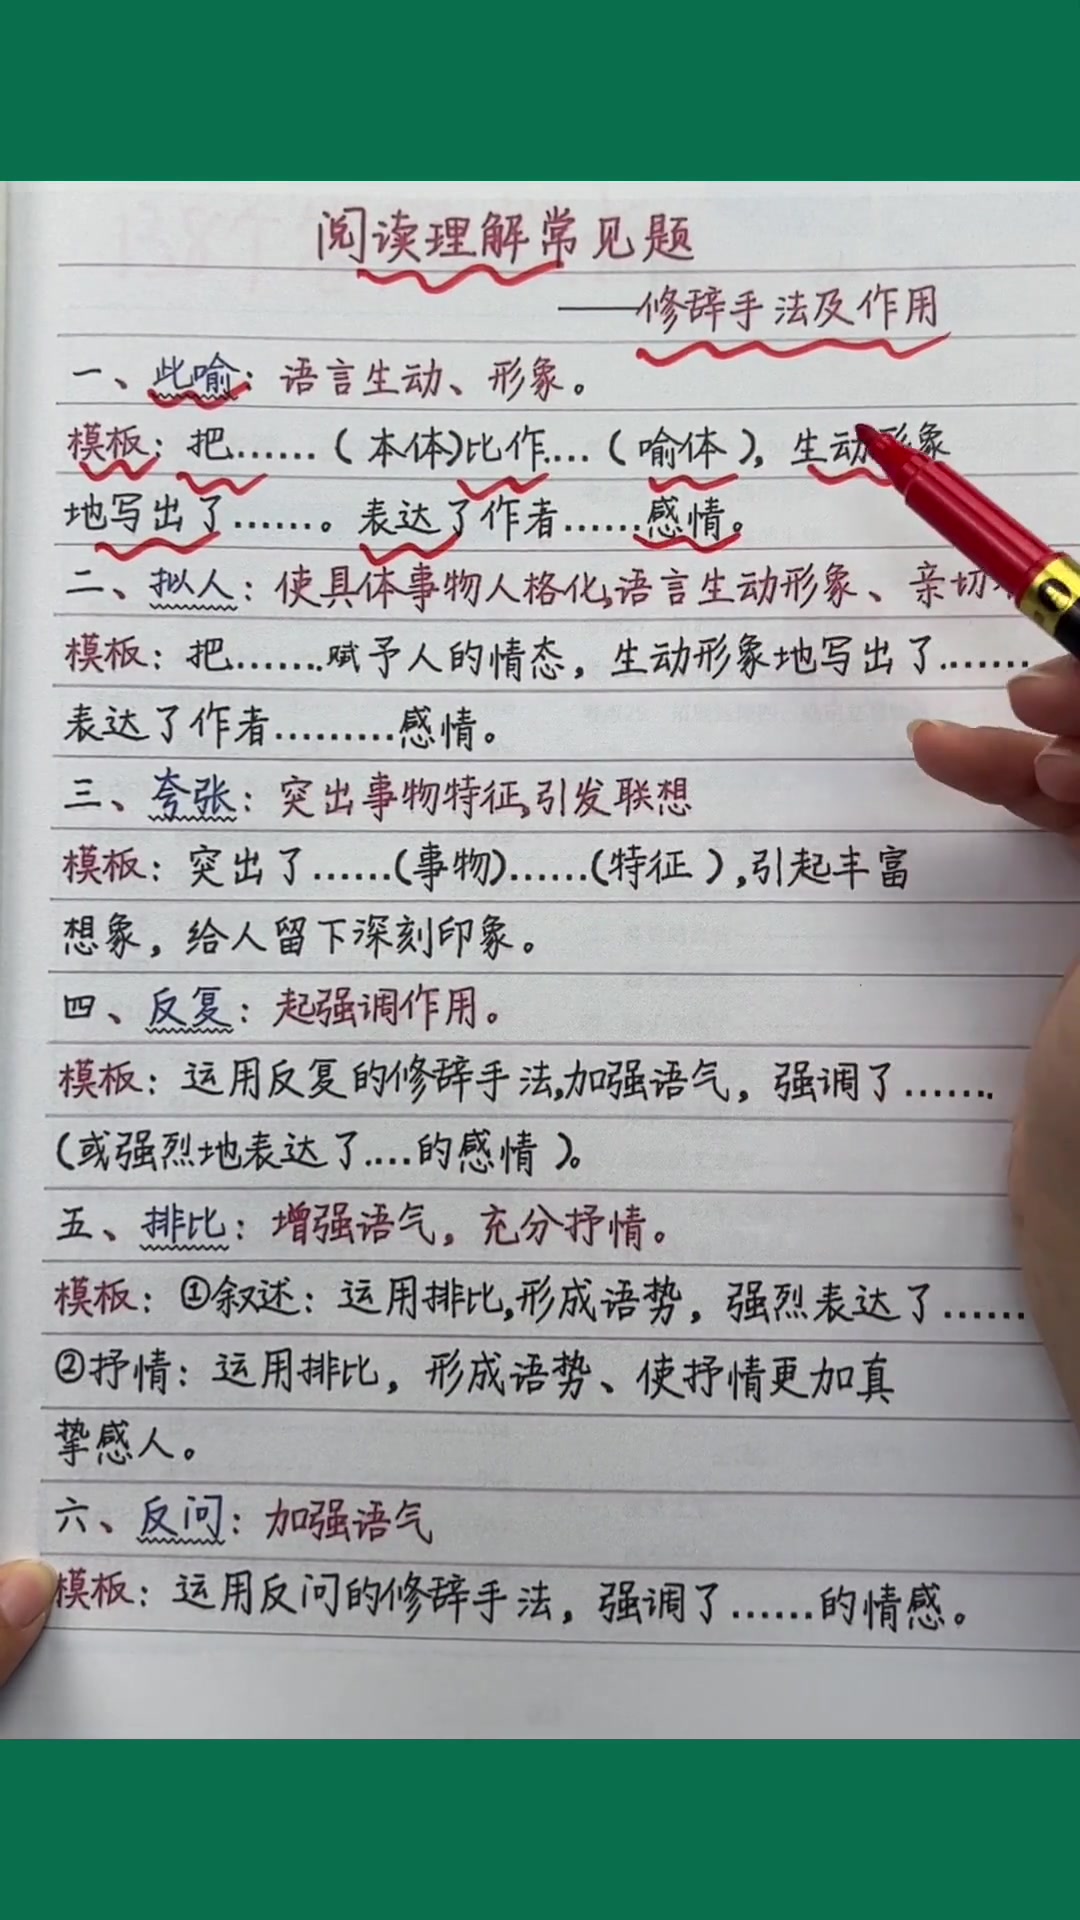 阅读理解常见题
——修辞手法及作用
一、比喻：语言生动、形象。
模板：把……（本体）比作….（喻体），生动形象
地写出了……。表达了作者……感情。
二、拟人：使具体事物人格化,语言生动形象、亲切
模板：把…….赋予人的情态，生动形象地写出了…….
表达了作者………感情。
三、夸张：突出事物特征,引发联想
模板：突出了……(事物)……(特征），引起丰富
想象，给人留下深刻印象。
四、反复：起强调作用。
模板：运用反复的修辞手法,加强语气，强调了…….
（或强烈地表达了….的感情）。
五、排比：增强语气，充分抒情。
模板：①叙述：运用排比,形成语势，强烈表达了……
②抒情：运用排比，形成语势、使抒情更加真
挚感人。
六、反问：加强语气
模板：运用反问的修辞手法，强调了……的情感。